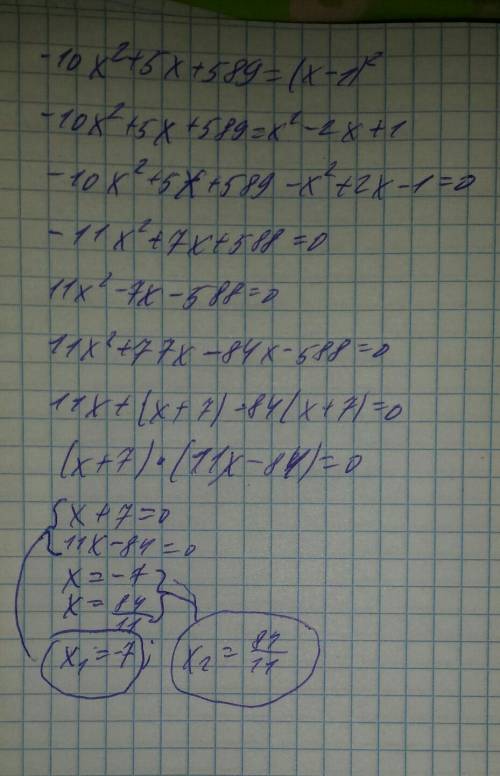 -10x²+5x+589=(x-1)²
-10x²+5x+589=x²-2x+1
-10x²+5x+589-x²+2x-1=0
-11x²+7x+588=0
11x²-7x-588=0
11x²+77x-84x-588=0
11x+(x+7)-84(x+7)=0
(x+7)·(11x-84)=0
{x+7=0
{11x-84=0
x=-7}
x=84/11}
x₁=-7; x₂=84/11